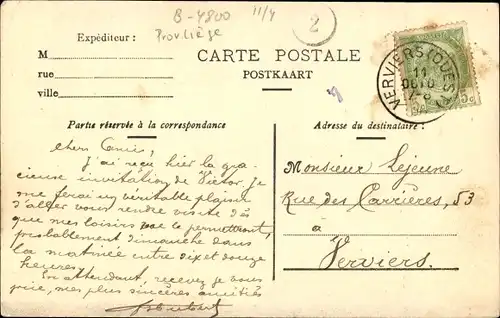 B-4800
11/4
Prov. Liège
2
Expéditeur :
M
rue
ville
CARTE POSTALE
POSTKAART
VERVIERS (OUEST)
11
5c
Partie réservée à la correspondance
Adresse du destinataire :
Chers Amis,
J'ai reçu hier la gra-
cieuse invitation de Victor. Je
me ferai un véritable plaisir
d'aller vous rendre visite dès
que mes loisirs me le permettront,
probablement dimanche dans
la matinée entre dix et douze
heures.
En attendant recevez je vous
prie, mes plus sincères amitiés
Monsieur Lejeune
Rue des Carrières, 53
à
Verviers.